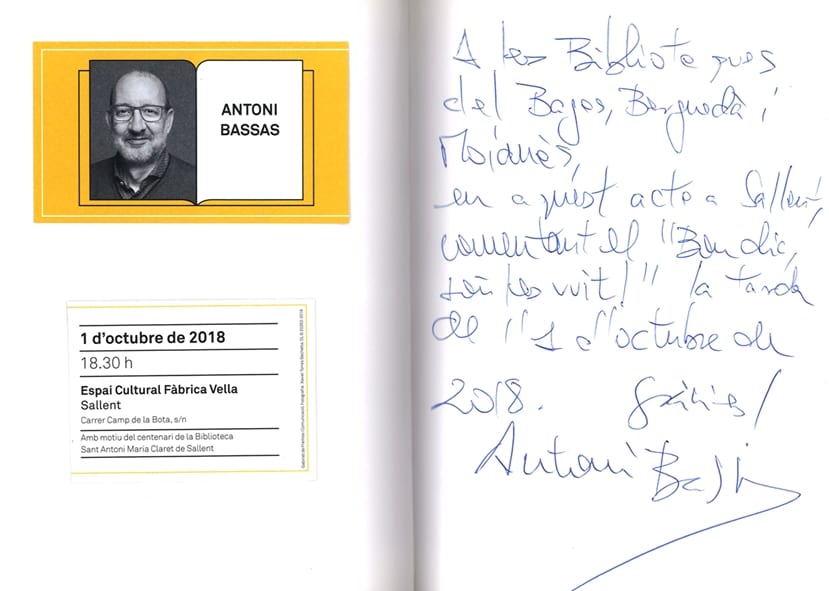 ANTONI
BASSAS
1 d'octubre de 2018
18.30 h
Espai Cultural Fàbrica Vella
Sallent
Carrer Camp de la Bota, s/n
Amb motiu del centenari de la Biblioteca
Sant Antoni Maria Claret de Sallent
A les Biblioteques
del Bages, Berguedà i
Moianès,
en aquest acte a Sallent,
comentant el "Bon dia,
són les vuit!" la tarda
de l'1 d'octubre de
2018. Gràcies!
Antoni Bassas